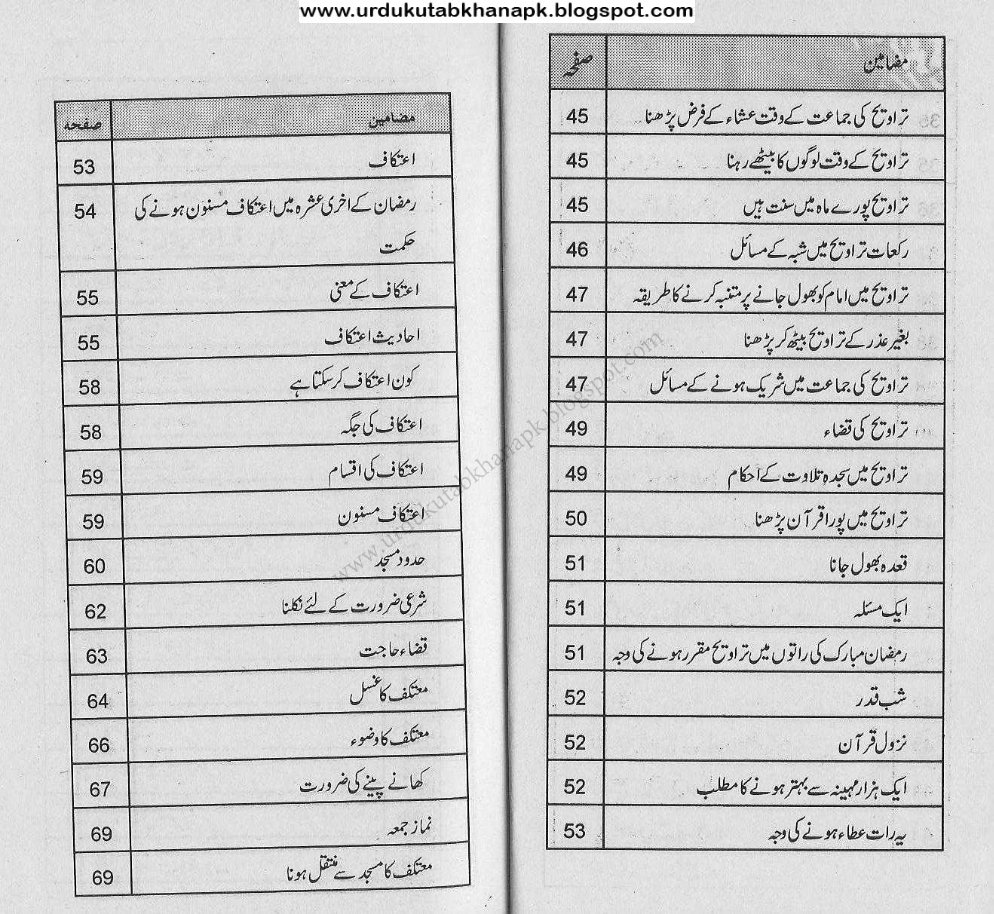 www.urdukutabkhanapk.blogspot.com
مضامین صفحہ
تراویح کی جماعت کے وقت عشاء کے فرض پڑھنا 45
تراویح کے وقت لوگوں کا بیٹھے رہنا 45
تراویح پورے ماہ میں سنت ہیں 45
رکعات تراویح میں شبہ کے مسائل 46
تراویح میں امام کو بھول جانے پر متنبہ کرنے کا طریقہ 47
بغیر عذر کے تراویح بیٹھ کر پڑھنا 47
تراویح کی جماعت میں شریک ہونے کے مسائل 47
تراویح کی قضاء 49
تراویح میں سجدہ تلاوت کے احکام 49
تراویح میں پورا قرآن پڑھنا 50
قعدہ بھول جانا 51
ایک مسئلہ 51
رمضان مبارک کی راتوں میں تراویح مقرر ہونے کی وجہ 51
شب قدر 52
نزول قرآن 52
ایک ہزار مہینہ سے بہتر ہونے کا مطلب 52
یہ رات عطاء ہونے کی وجہ 53
مضامین صفحہ
اعتکاف 53
رمضان کے اخری عشرہ میں اعتکاف مسنون ہونے کی 54
حکمت
اعتکاف کے معنی 55
احادیث اعتکاف 55
کون اعتکاف کر سکتا ہے 58
اعتکاف کی جگہ 58
اعتکاف کی اقسام 59
اعتکاف مسنون 59
حدود مسجد 60
شرعی ضرورت کے لئے نکلنا 62
قضاء حاجت 63
معتکف کا غسل 64
معتکف کا وضوء 66
کھانے پینے کی ضرورت 67
نماز جمعہ 69
معتکف کا مسجد سے منتقل ہونا 69
www.urdukutabkhanapk.blogspot.com